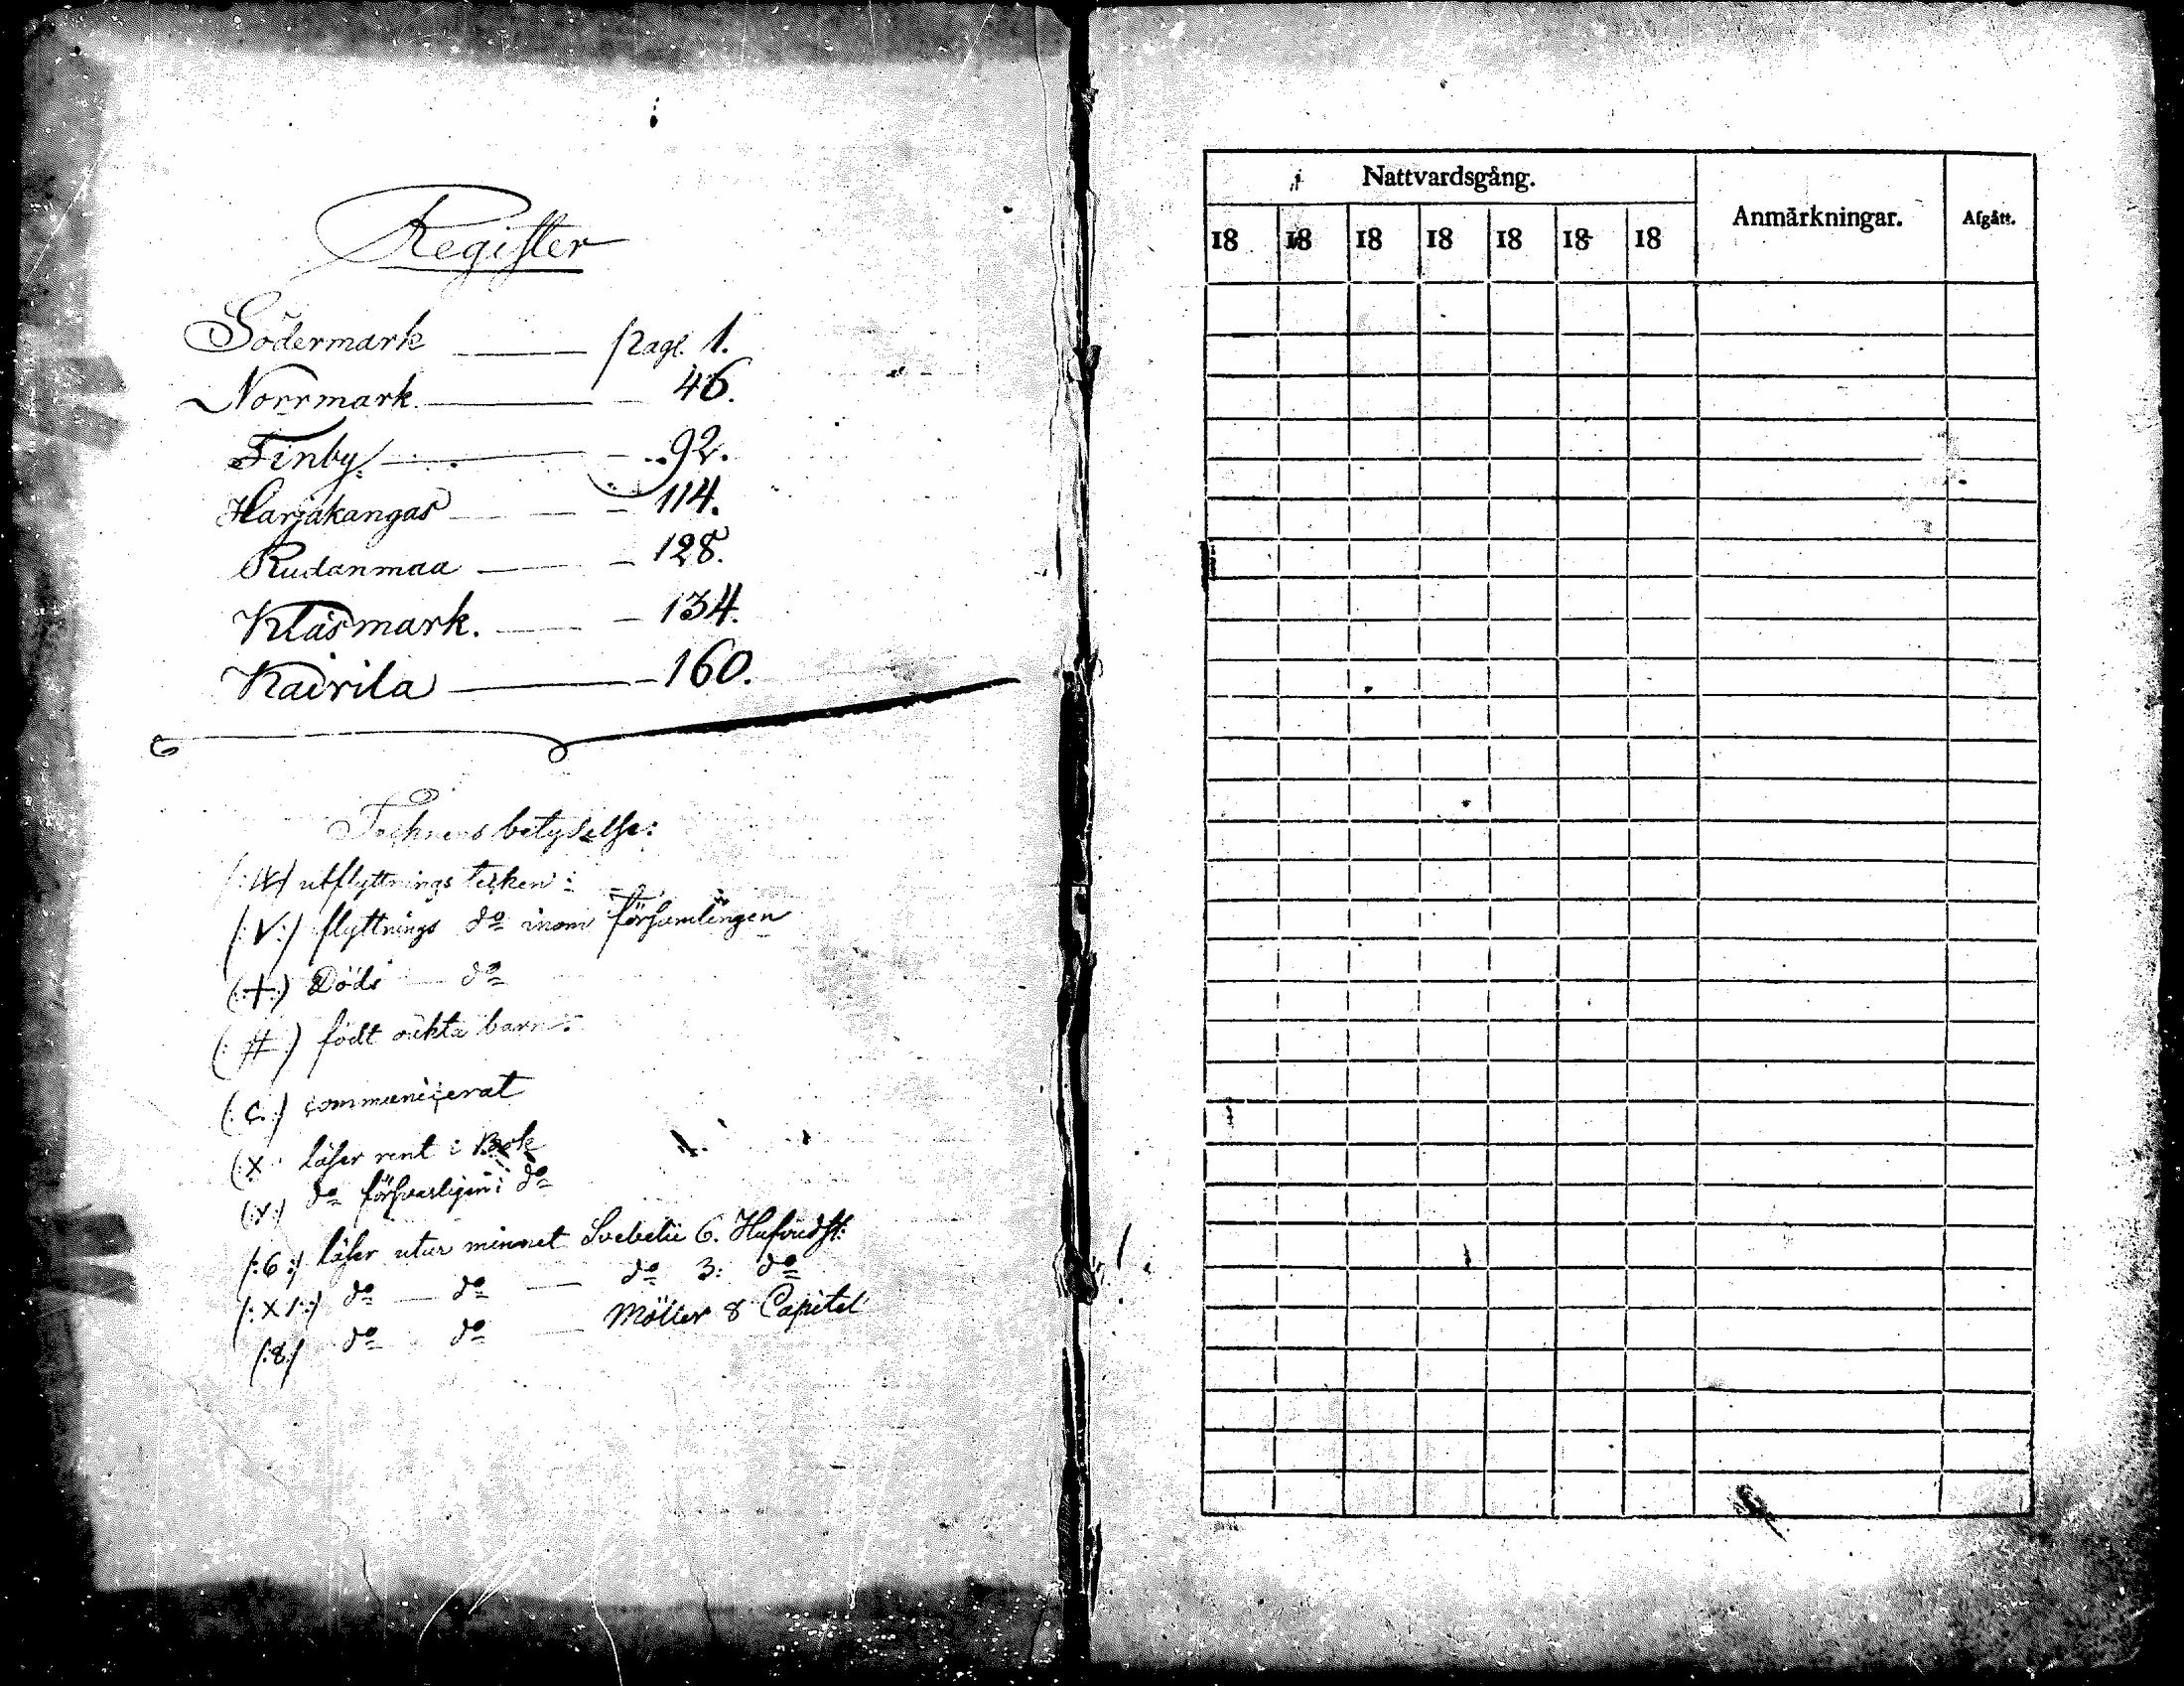 Register
Södermark — pag. 1.
Norrmark. — 46.
Finby. — 92.
Harjakangas — 114.
Rudanmaa — 128.
Kläsmark. — 134.
Kairila — 160.
betydelse:
utflyttnings teiken:
(:V:) flyttnings do inom församlingen
(:+:) Döds — do
(:#:) födt oäkta barn:
(:C:) communicerat
(:X läser rent i Bok
(:v:) do försvarligen i do
(:6:) läser utur minnet Svebelii 6. Hufvudst:
(:X/:) do — do — do 3: do
(:8:) do do — Möller 8 Capitel
Nattvardsgång.
Anmärkningar.
Afgått.
18 18 18 18 18 18 18